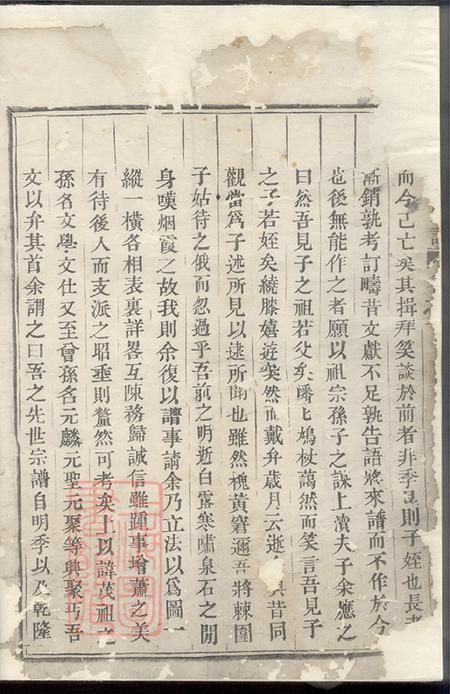 而今己亡矣其揖拜笑談於前者非季則子姪也長老
漸銷孰考訂疇昔文獻不足孰告語將來譜而不作於今
也後無能作之者願以祖宗孫子之謀上瀆夫子余應之
曰然吾見子之祖若父矣皤鳩杖藹然而笑言吾見子
之子若姪矣繞膝嬉遊矣然而戴弁歲月云逝其昔同
觀當爲子述所見以逮所聞也雖然槐黃窘邇吾將棘圍
子姑待之俄而忽過乎吾前之明逝白露寒嘯泉石之閒
身嘆烟霞之故我則余復以譜事請余乃立法以爲圖一
縱一橫各相表裏詳畧互陳務歸誠信雖踵事增蕭之美
有待後人而支派之昭垂則釐然可考矣上以諱茂祖之
孫名文學文仕又至會孫名元麟元聖元聚等與聚丐吾
文以弁其首余謂之曰吾之先世宗譜自明季以及乾隆